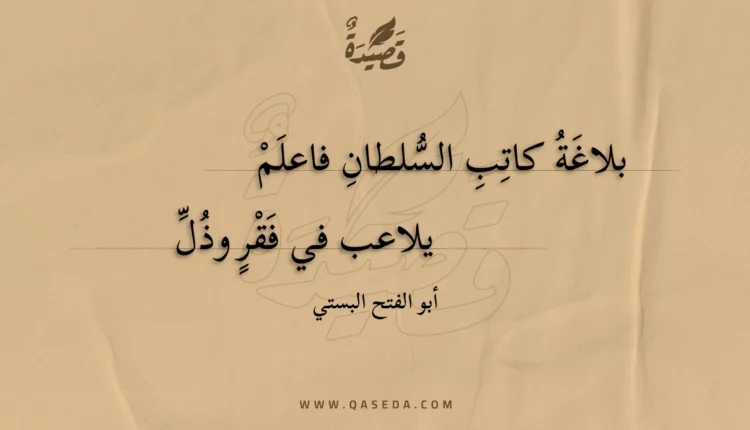 قَصِيدَةٌ
بلاغَةُ كاتِبِ السُّلطانِ فاعلَمْ
يلاعب في فَقْرٍ وذُلِّ
أبو الفتح البستي
WWW.QASEDA.COM